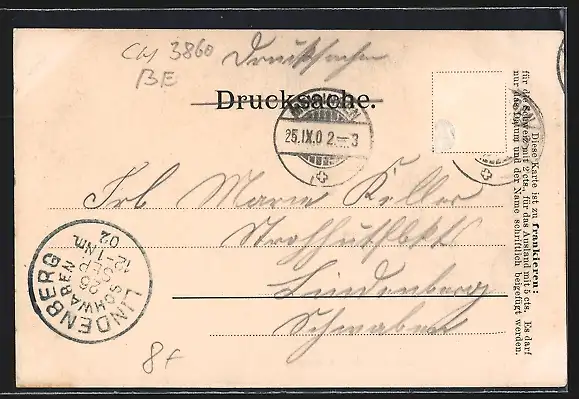 CH 3860
BE
Drucksache
Drucksache.
25.IX.02–3
Frl. Marie Keller
Strohhutfbkt
Lindenberg
Schwaben
LINDENBERG
SCHWABEN
26
SEP
12-1 Nm.
02
8f
Diese Karte ist zu frankieren:
für die Schweiz mit 2 cts., für das Ausland mit 5 cts. Es darf
nur das Datum und der Name schriftlich beigefügt werden.